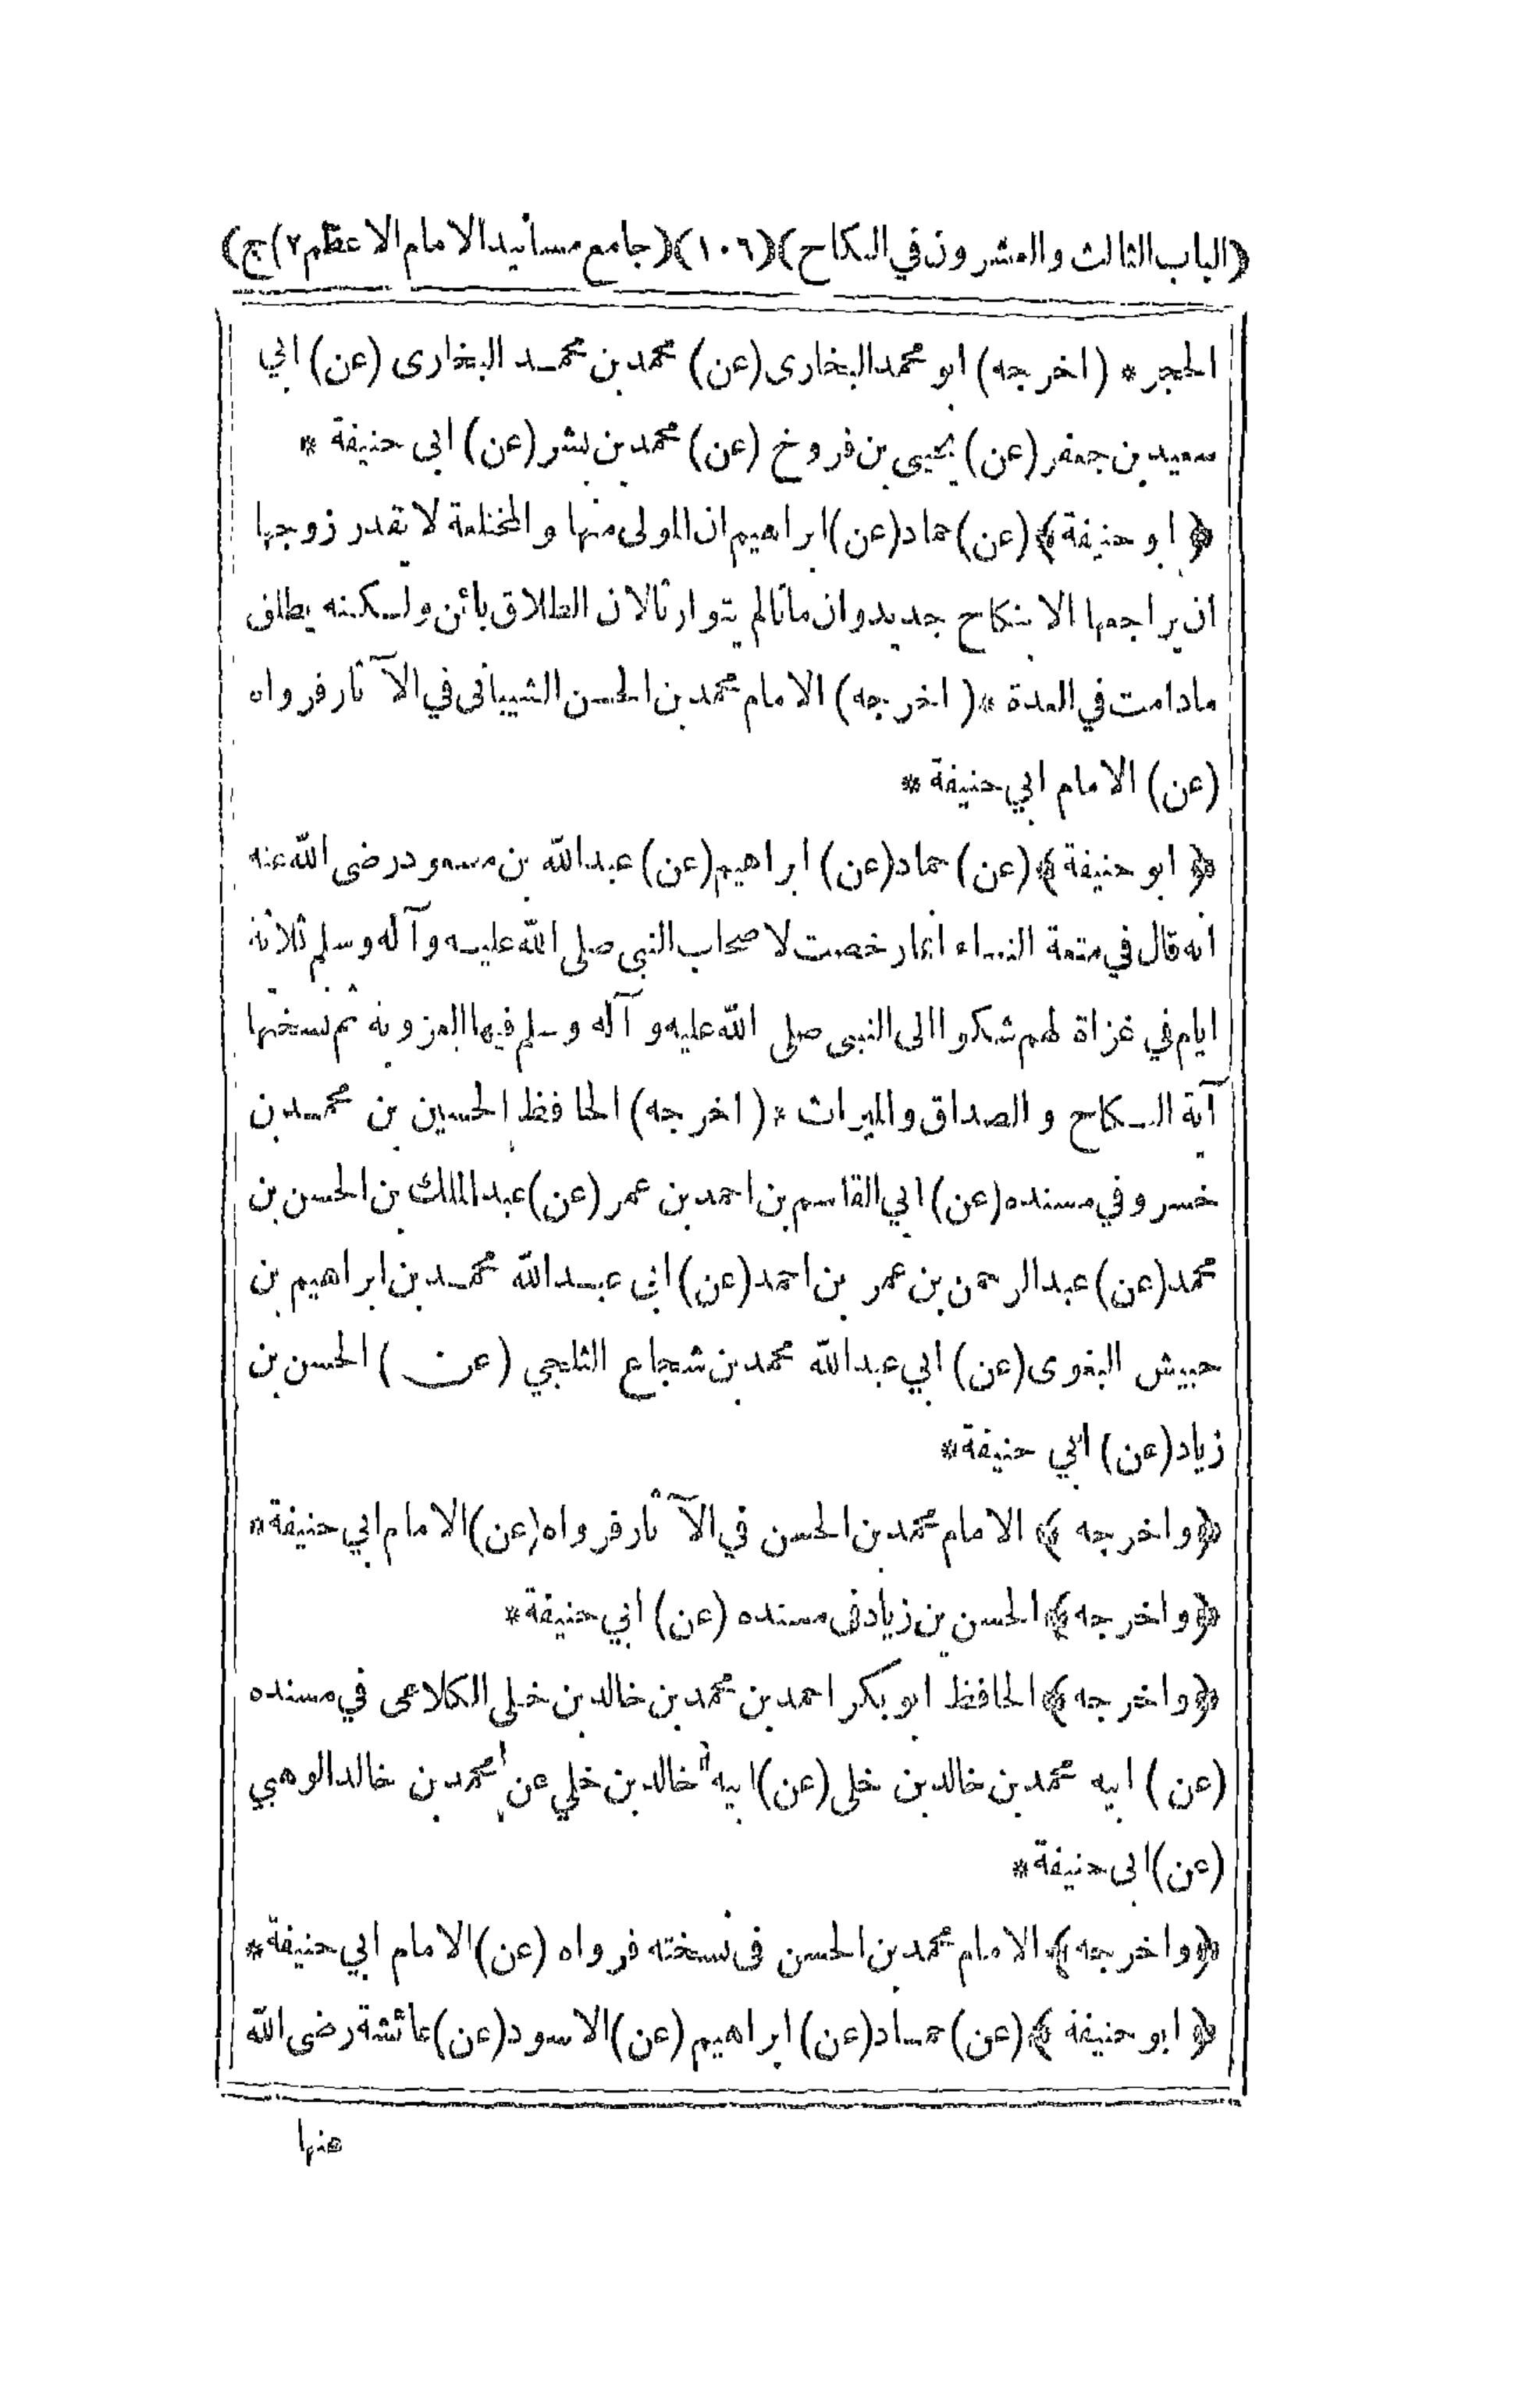 (الباب الثالث والعشرون في النكاح) (١٠٦) (جامع مسانيد الامام الاعظم ٢) ج)
الحجر * (اخرجه) ابو محمد البخارى (عن) محمد بن محمد البخارى (عن) ابي
سعيد بن جعفر (عن) يحيى بن فروخ (عن) محمد بن بشر (عن) ابى حنيفة *
﴿ ابو حنيفة ﴾ (عن) حماد (عن) ابراهيم ان المولى منها والمختلعة لا تقدر زوجها
ان يراجعها الا بنكاح جديد وان ماتا لم يتوارثا لان الطلاق بائن ولكنه يطلق
مادامت في العدة * (اخرجه) الامام محمد بن الحسن الشيبانى في الآثار فرواه
(عن) الامام ابي حنيفة *
﴿ ابو حنيفة ﴾ (عن) حماد (عن) ابراهيم (عن) عبد الله بن مسعود رضى الله عنه
انه قال في متعة النساء انما رخصت لاصحاب النبى صلى الله عليه وآله وسلم ثلاثة
ايام في غزاة لهم شكوا الى النبى صلى الله عليه وآله وسلم فيها العزوبة ثم نسختها
آية النكاح والصداق والميراث * (اخرجه) الحافظ الحسين بن محمد بن
خسرو في مسنده (عن) ابي القاسم بن احمد بن عمر (عن) عبد الملك بن الحسن بن
محمد (عن) عبد الرحمن بن عمر بن احمد (عن) ابى عبد الله محمد بن ابراهيم بن
حبيش البغوى (عن) ابي عبد الله محمد بن شجاع الثلجي (عن) الحسن بن
زياد (عن) ابي حنيفة *
﴿ واخرجه ﴾ الامام محمد بن الحسن في الآثار فرواه (عن) الامام ابي حنيفة *
﴿ واخرجه ﴾ الحسن بن زياد فى مسنده (عن) ابي حنيفة *
﴿ واخرجه ﴾ الحافظ ابو بكر احمد بن محمد بن خالد بن خلى الكلاعى في مسنده
(عن) ابيه محمد بن خالد بن خلى (عن) ابيه خالد بن خلي عن محمد بن خالد الوهبي
(عن) ابى حنيفة *
﴿ واخرجه ﴾ الامام محمد بن الحسن فى نسخته فرواه (عن) الامام ابي حنيفة *
﴿ ابو حنيفة ﴾ (عن) حماد (عن) ابراهيم (عن) الاسود (عن) عائشة رضى الله
عنها